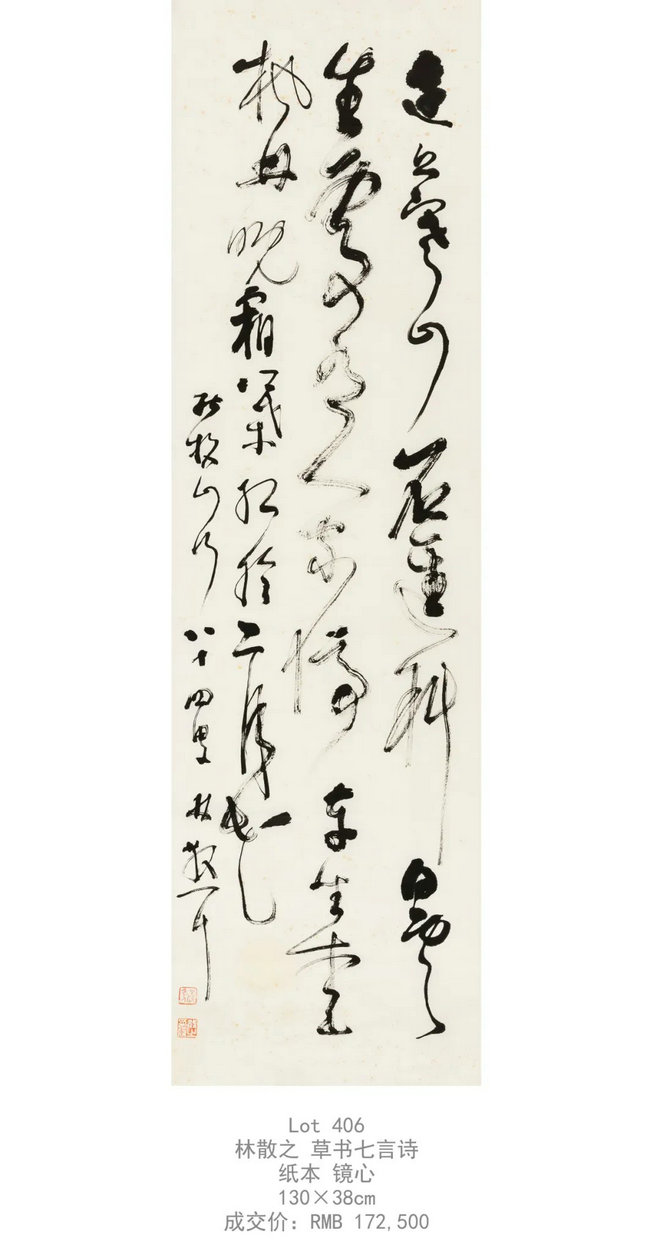 遠上寒山石逕斜白雲
生處有人家停車坐愛
楓林晚霜葉紅於二月花
杜牧山行 八十四叟 林散耳
Lot 406
林散之 草书七言诗
纸本 镜心
130×38cm
成交价：RMB 172,500